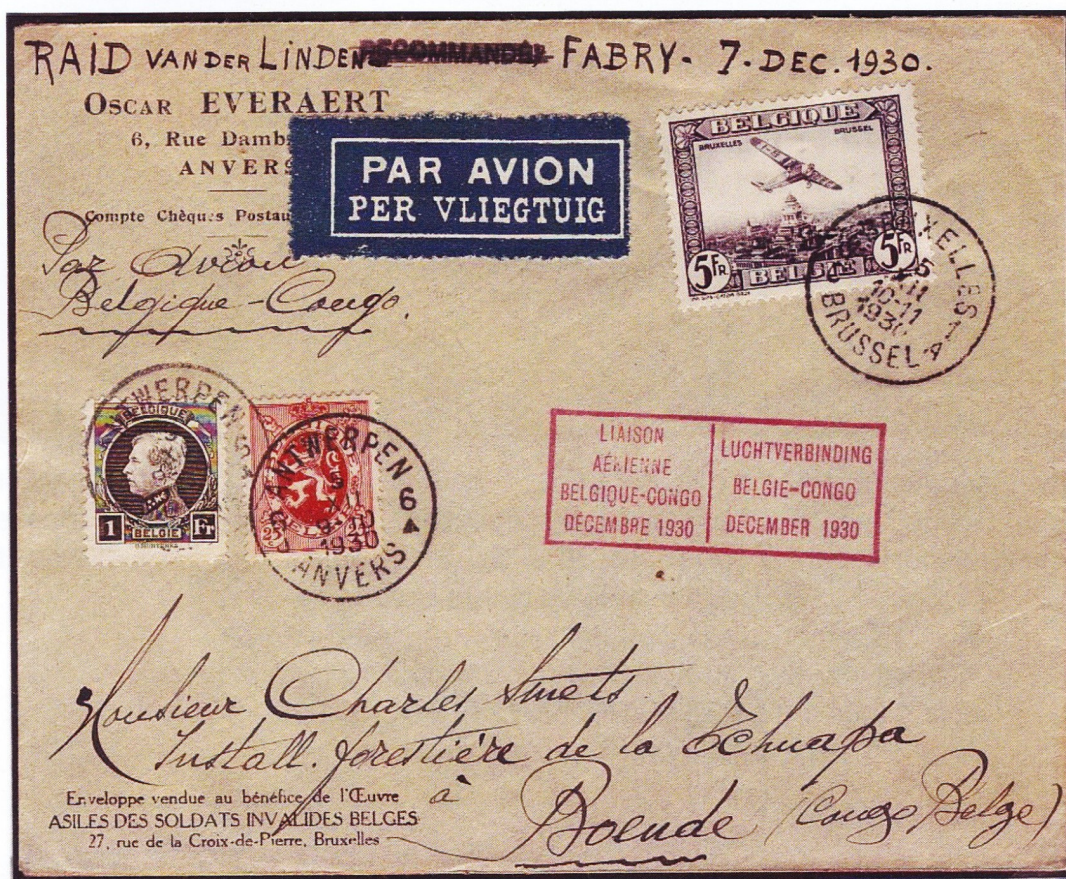 RAID VAN DER LINDEN RECOMMANDÉ FABRY - 7 - DEC. 1930.
OSCAR EVERAERT
6, Rue Damb
ANVERS
Compte Chèques Postau
PAR AVION
PER VLIEGTUIG
Par Avion
Belgique - Congo.
BELGIQUE
BRUXELLES BRUSSEL
5 FR BELGIE 5 FR
BRUXELLES 1
10-11
1930
BRUSSEL
BELGIQUE
1 BELGIE Fr
ANTWERPEN 5
25 25
ANTWERPEN 6
1930
ANVERS
LIAISON
AÉRIENNE
BELGIQUE-CONGO
DÉCEMBRE 1930
LUCHTVERBINDING
BELGIE-CONGO
DECEMBER 1930
Monsieur Charles Smets
Install. forestière de la Tchuapa
à
Boende (Congo Belge)
Enveloppe vendue au bénéfice de l'Œuvre
ASILES DES SOLDATS INVALIDES BELGES
27, rue de la Croix-de-Pierre, Bruxelles